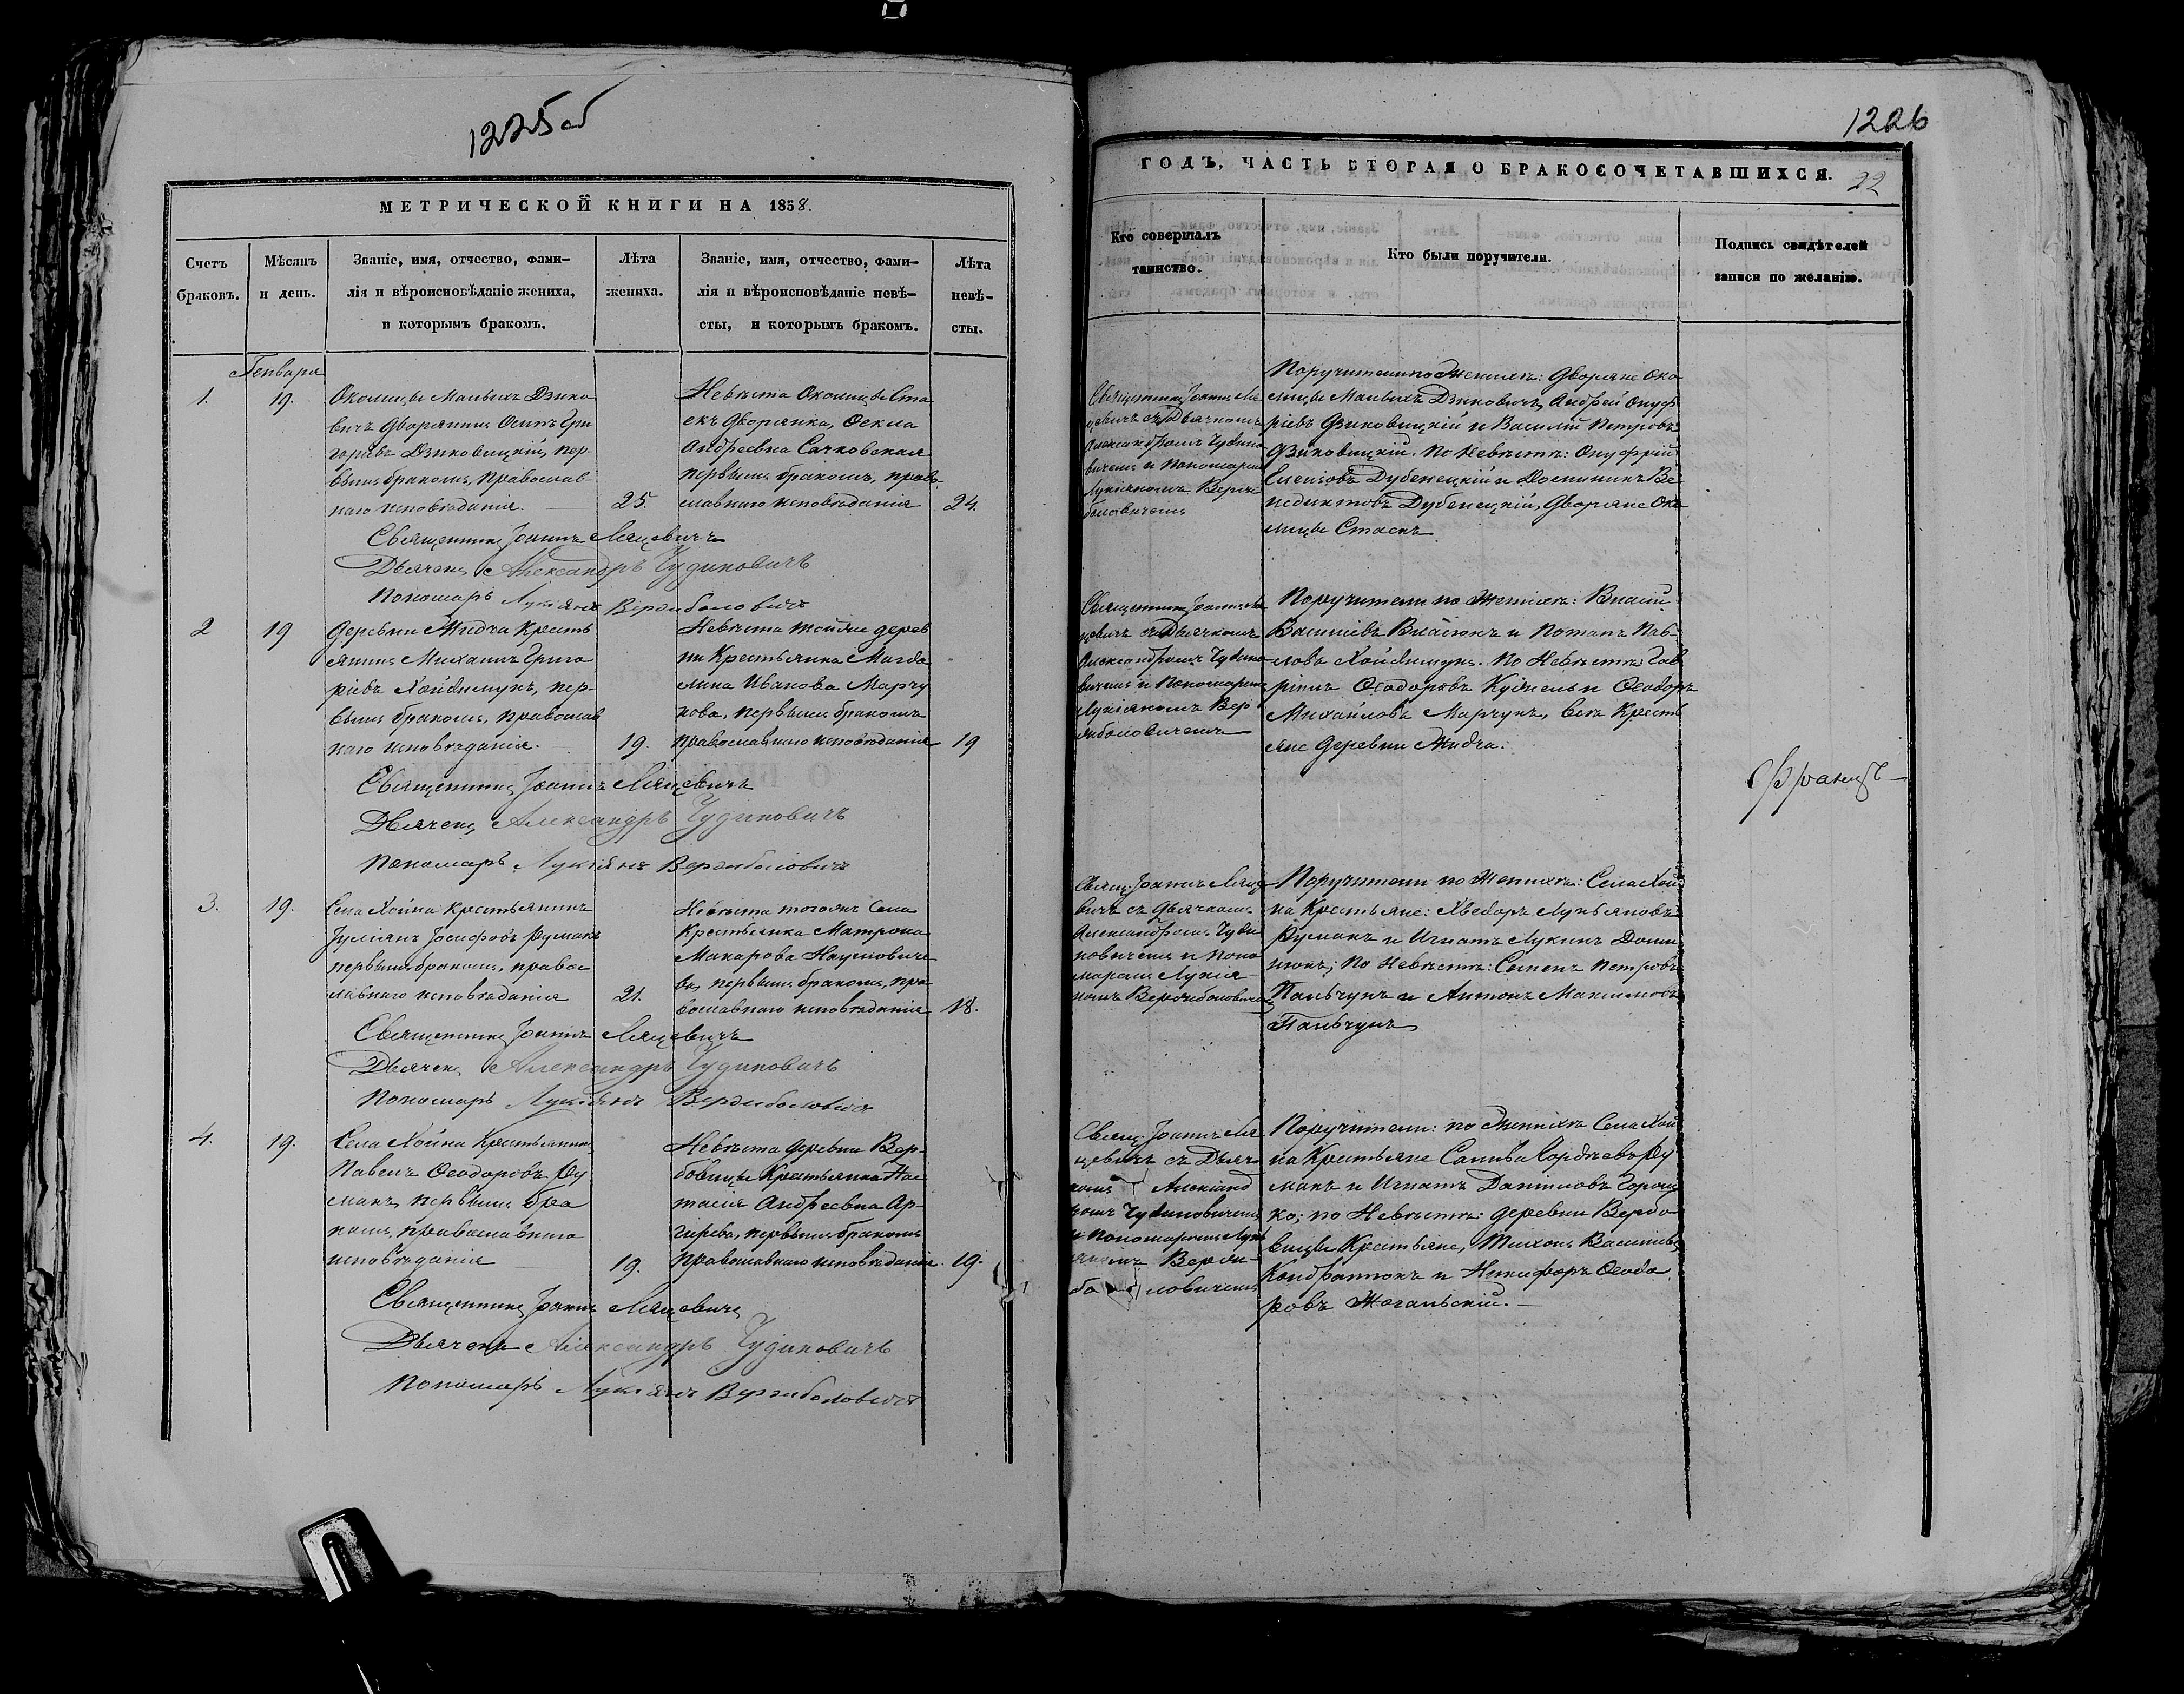 1225об
МЕТРИЧЕСКОЙ КНИГИ НА 1858.
Счетъ
браковъ.
Мѣсяцъ
и день.
Званіе, имя, отчество, фами-
лія и вѣроисповѣданіе жениха,
и которымъ бракомъ.
Лѣта
жениха.
Званіе, имя, отчество, фами-
лія и вѣроисповѣданіе невѣ-
сты, и которымъ бракомъ.
Лѣта
невѣ-
сты.
Генваря
1.
19.
Околицы Малыхъ Дзико
вичъ Дворянинъ Осипъ Гри
горіевъ Дзиковицкій, пер-
вымъ бракомъ, Православ-
наго исповѣданія.
25.
Невѣста Околицы Ста
екъ Дворянка, Ѳекла
Андреевна Сачковская
первымъ бракомъ, право
славнаго исповѣданія
24.
Священникъ Іоаннъ Ляцевичъ
Дьячекъ Александръ Чудиновичъ
Пономарь Лукіянъ Вержболовичъ
2
19
Деревни Жидча Кресть
янинъ Михаилъ Григо
ріевъ Хойдимукъ, пер-
вымъ бракомъ, православ
наго исповѣданія.
19.
Невѣста тойже дерев
ни Крестьянка Магда
лина Иванова Марчу
кова, первымъ бракомъ
православнаго исповѣданія
19
Священникъ Іоаннъ Ляцевичъ
Дьячекъ Александръ Чудиновичъ
Пономарь Лукіянъ Вержболовичъ
3.
19.
Села Хойна Крестьянинъ
Іуліянъ Іосифовъ Румакъ
первымъ бракомъ, правос
лавнаго исповѣданія
21.
Невѣста тогожъ Села
Крестьянка Матрона
Макарова Наумовиче
ва, первымъ бракомъ, пра
вославнаго исповѣданія
18.
Священникъ Іоаннъ Ляцевичъ
Дьячекъ Александръ Чудиновичъ
Пономарь Лукіянъ Вержболовичъ
4.
19.
Села Хойна Крестьянинъ
Павелъ Ѳеодоровъ Ру
макъ, первымъ бра
комъ, православнаго
исповѣданія
19.
Невѣста деревни Вер-
бовицы Крестьянка Нас
тасія Андреевна Ар-
первымъ бракомъ
православнаго исповѣданія.
19.
Священникъ Іоаннъ Ляцевичъ
Дьячекъ Александръ Чудиновичъ
Пономарь Лукіянъ Вержболовичъ
1226
ГОДЪ, ЧАСТЬ ВТОРАЯ О БРАКОСОЧЕТАВШИХСЯ.
22
Кто совершалъ
таинство.
Кто были поручители.
Подпись свидѣтелей
записи по желанію.
Священникъ Іоаннъ Ля
цевичъ съ Дьячкомъ
Александромъ Чудино
вичемъ и Пономаремъ
Лукіяномъ Верж
боловичемъ
Поручители по Женихѣ: Дворяне Око
лицы Малыхъ Дзиковичъ, Андрей Онуф
ріевъ Дзиковицкій и Василій Петровъ
Дзиковицкій. По Невѣстѣ: Онуфрій
Дубенецкій и Доминикъ Ве
недиктовъ Дубенецкій, Дворяне Око
лицы Стаекъ
Священникъ Іоаннъ Ля
цевичъ съ Дьячкомъ
Александромъ Чудино
вичемъ и Пономаремъ
Лукіяномъ Вер
жболовичемъ
Поручители по Женихѣ:
Васильевъ и Потапъ Пав-
ловъ Хойдимукъ. По Невѣстѣ Гав
ріилъ Ѳеодоровъ и Ѳеодоръ
Михайловъ Марчукъ, всѣ Кресть
яне Деревни Жидча.
Францъ
Свящ: Іоаннъ Ляце
вичъ съ Дьячкомъ
Александромъ Чуди
новичемъ и Поно
маремъ Лукія
номъ Вержболовичемъ
Поручители по Женихѣ: Села Хой
на Крестьяне: Ѳведоръ Лукьяновъ
Румакъ и Игнатъ Лукинъ
По Невѣстѣ: Семенъ Петровъ
Пальчукъ и Антонъ Максимовъ
Пальчукъ
Свящ: Іоаннъ Ля
цевичъ съ Дьяч
комъ Александ
ромъ Чудиновичемъ
и Пономаремъ Лукі
яномъ Вержи
боловичемъ
Поручители: по Женихѣ Села Хой
на Крестьяне Ру
макъ и Игнатъ Даниловъ
ко; по Невѣстѣ: деревни Вербо
вицы Крестьяне, Тихонъ Васильевъ
Кондратюкъ и Никифоръ Ѳеодо
ровъ Жогальскій.